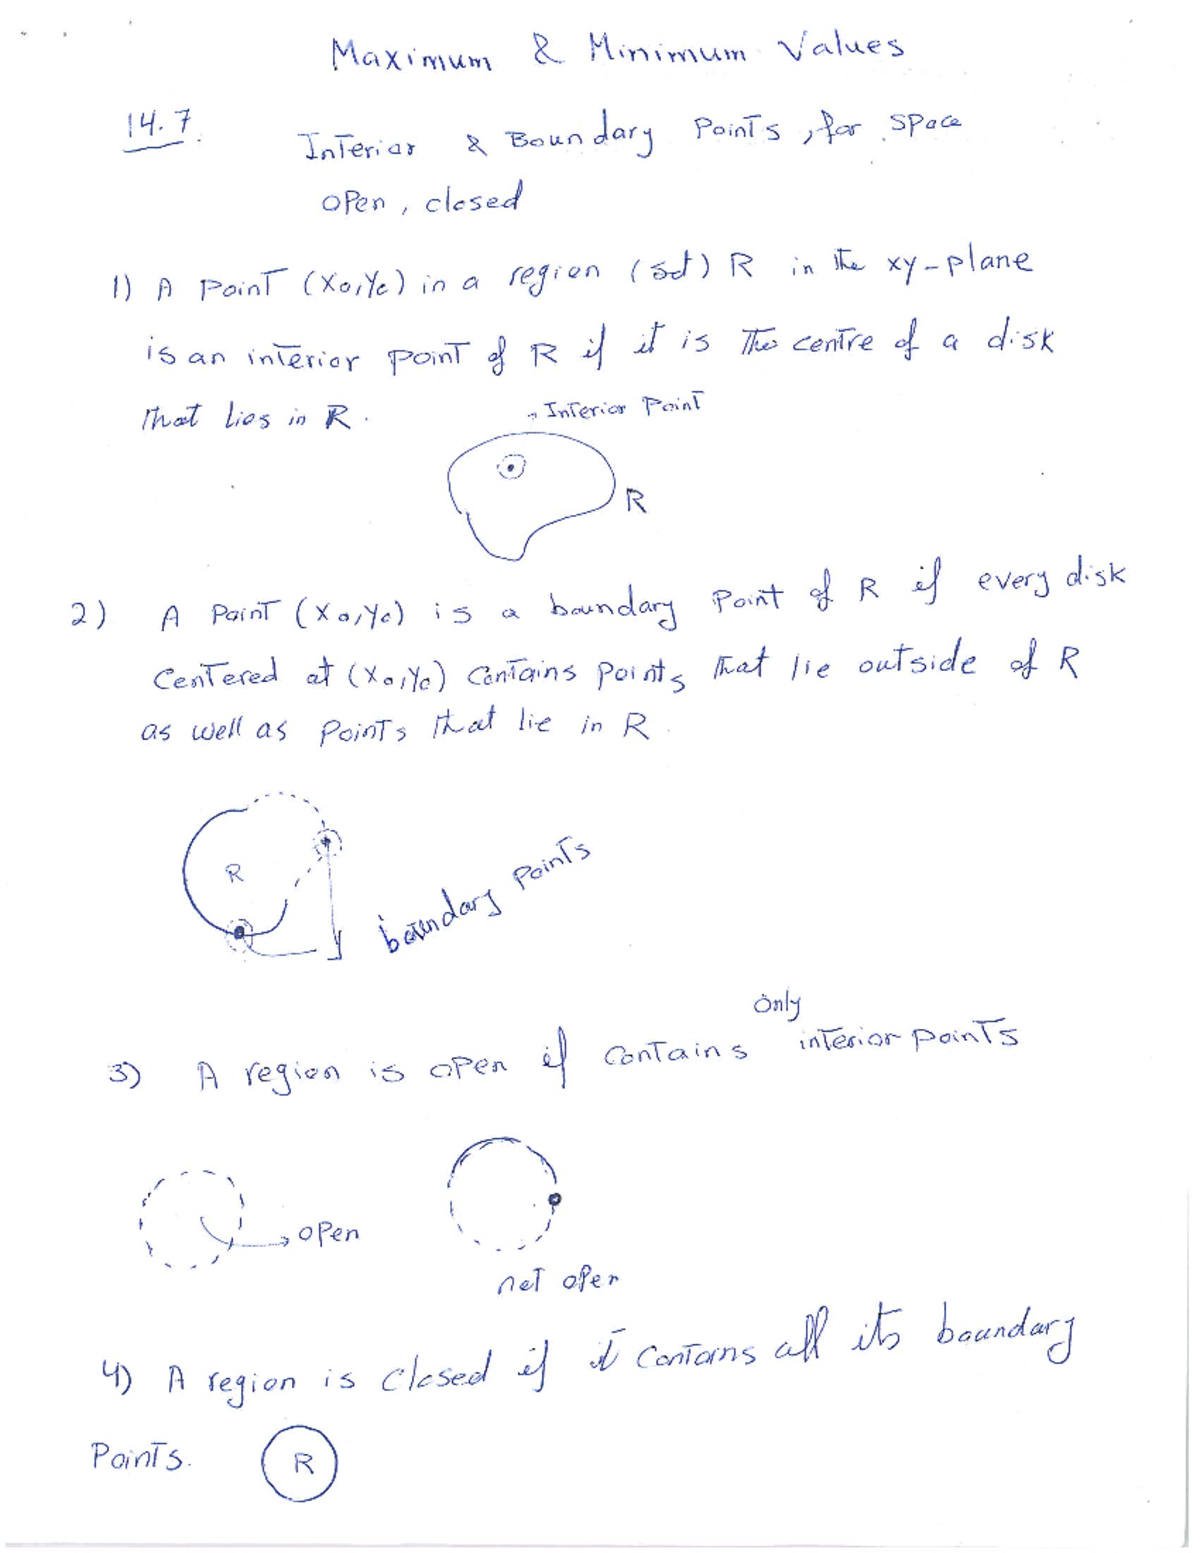 Maximum & Minimum Values
14.7.
Interior & Boundary Points, for space
open, closed
1) A point (x₀,y₀) in a region (set) R in the xy-plane
is an interior point of R if it is the centre of a disk
that lies in R.
Interior Point
R
2) A point (x₀,y₀) is a boundary point of R if every disk
centered at (x₀,y₀) contains points that lie outside of R
as well as points that lie in R.
R
boundary points
3) A region is open if contains only interior points
open
not open
4) A region is closed if it contains all its boundary
Points.
R